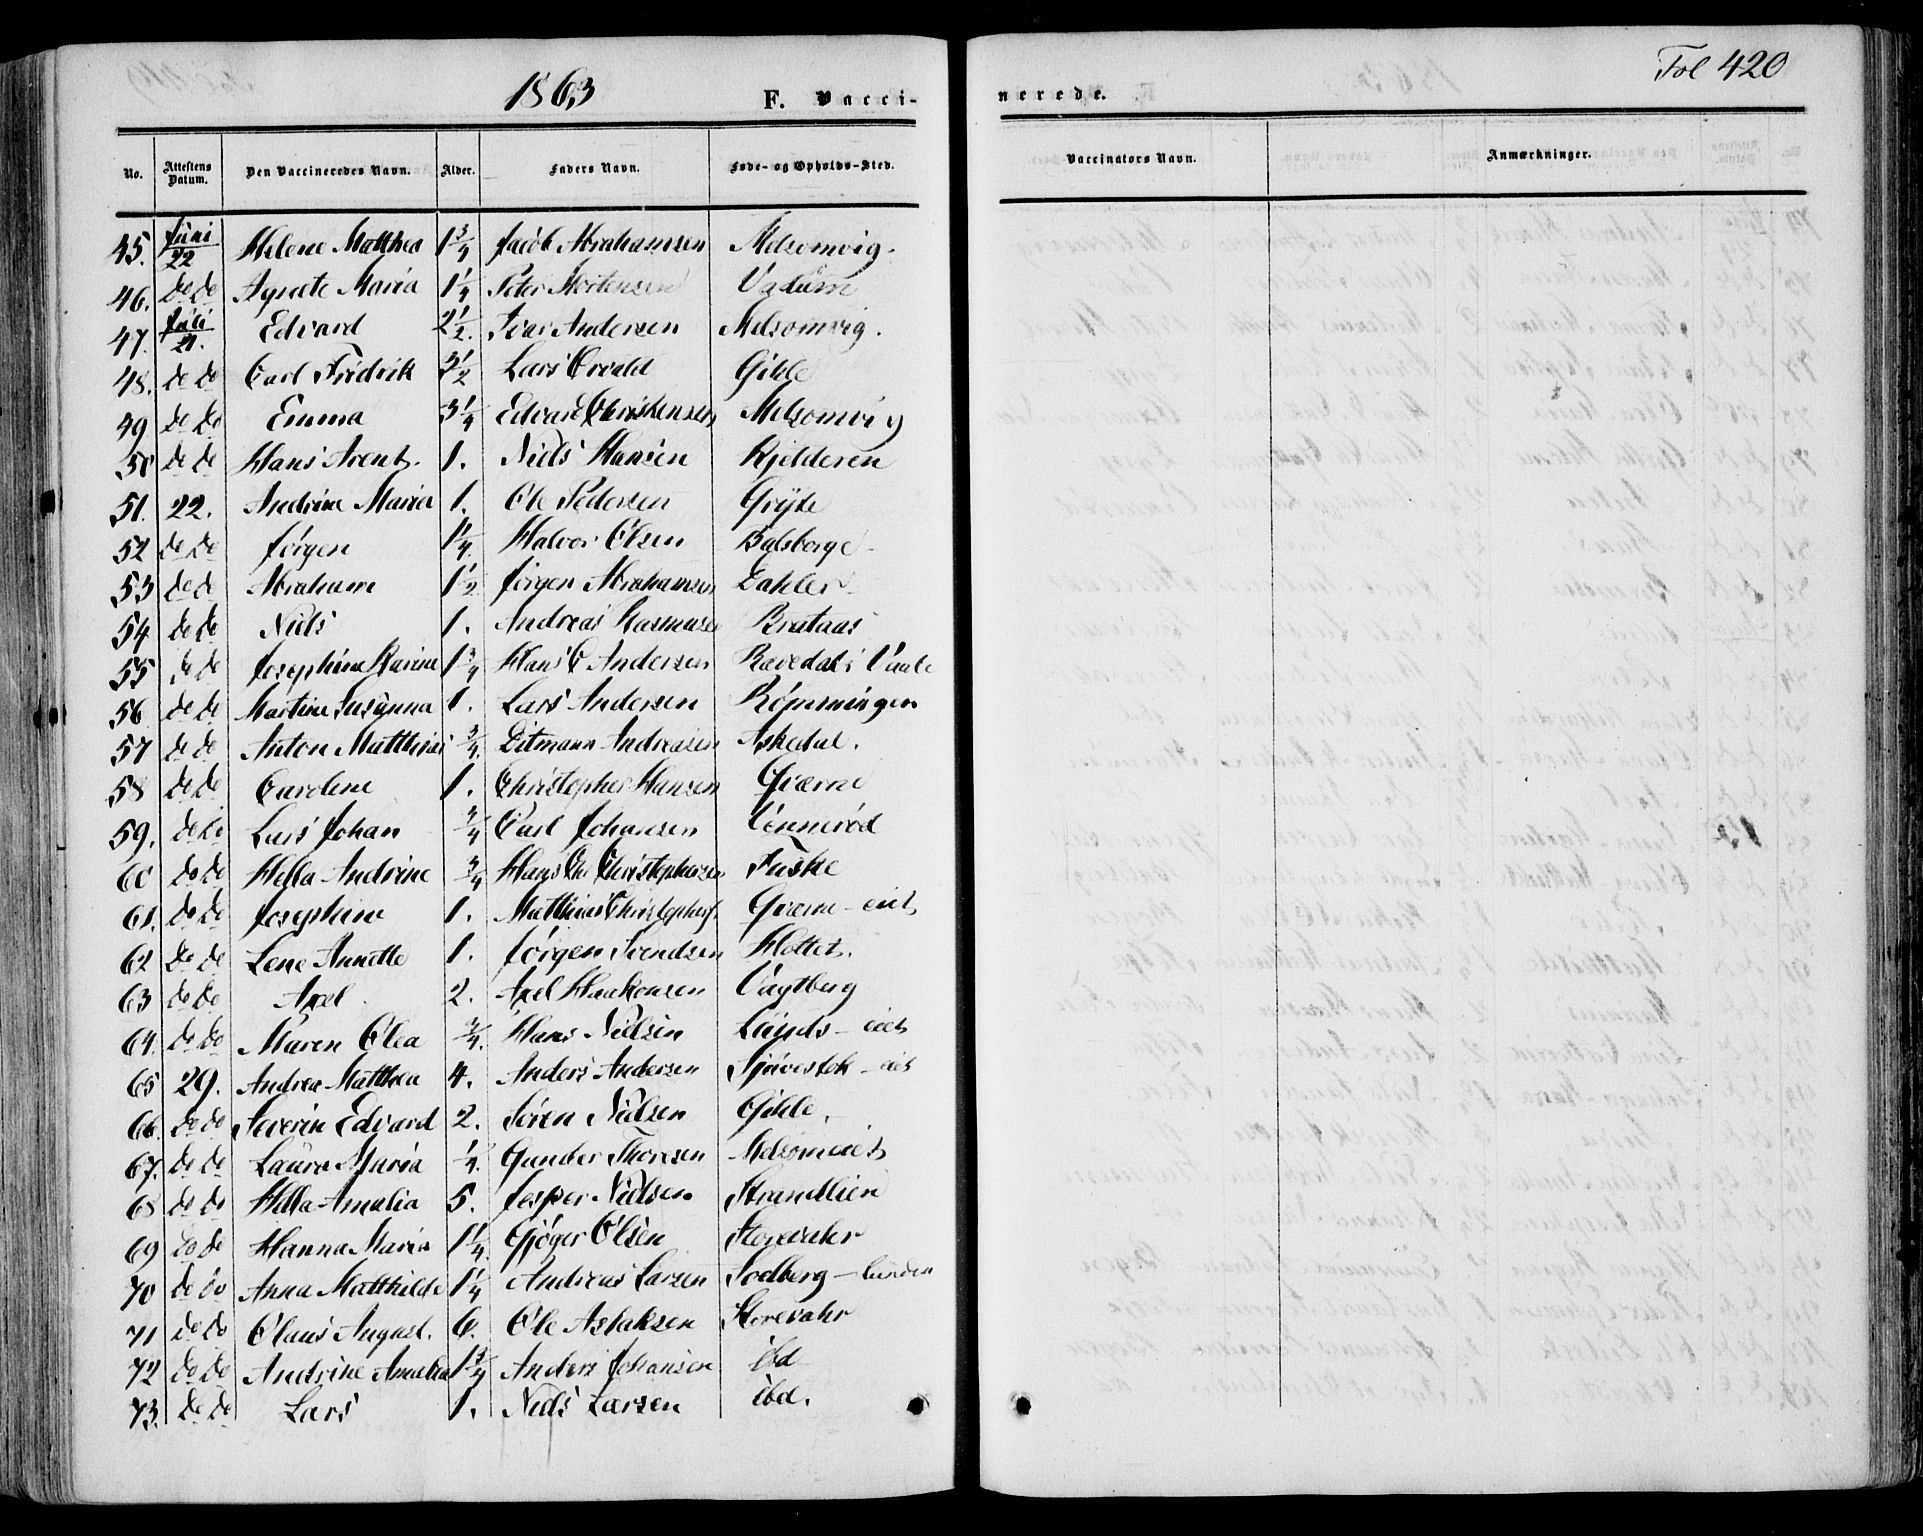 1863
F. Vacci-
nerede.
Fol 420
No. Attestens Datum. Den Vaccineredes Navn. Alder. Faders Navn. Føde- og Opholds-Sted. Vaccinators Navn. Anmærkninger.
45. Juni 22 Helene Matthea 1 3/4 Jacob Abrahamsen Melsomvig.
46. do do Agnete Maria 1 1/4 Peter Mortensen Vadum
47. Juli 21. Edvard 2 1/2. Ivar Andersen Melsomvig.
48. do do Carl Fridrik 3 1/2 Lars Evald Gihle
49 do do Emma 3 1/4 Edvard Christensen Melsomvig
50 do do Hans Arent. 1. Niels Hansen Kjelderen
51. 22. Andrine Maria 1. Ole Pedersen Gryte
52 do do Jørgen 1 1/4. Halvor Olsen
53 do do Abraham 1 1/2 Jørgen Abrahamsen Dahler
54 do do Niels 1. Andreas Rasmusen Brataas
55 do do Josephine Karine 1 3/4 Hans C Andersen Ravedal i Vaale
56 do do Martine Susanna 1. Lars Andersen Rømmingen
57 do do Anton Matthias 3/4. Ditmann Andreasen Askedal.
58 do do Caroline 1. Christopher Hansen Qværne
59. do do Lars Johan 3/4 Carl Johansen Vennerød
60 do do Hella Andrine 3/4 Hans Chr Christophersen Fuske
61. do do Josephine 1. Matthias Christophers. Qværne-eiet
62 do do Lene Annette 1. Jørgen Svendsen Flottet.
63 do do Axel 2. Axel Haakonsen Vagtberg
64. do do Maren Olea 3/4. Hans Nielsen Lunds-eiet
65 29. Andrea Matthea 4. Anders Andersen Sjøvestok-eiet
66. do do Severin Edvard 2. Søren Nielsen Gihle.
67. do do Laura Maria 1/4. Gunder Thoresen Melsomeiet
68 do do Hella Amalia 5. Jesper Nielsen Strandlien
69 do do Hanna Maria 1 1/4. Gjøger Olsen Storevahr
70 do do Anna Matthilde 1 1/4 Andreas Larsen Solberg-lunden
71 do do Claus August. 6. Ole Aslaksen Storevahr
72 do do Andrine Amalia 1 3/4 Anders Johansen ibd
73. do do Lars 1. Niels Larsen ibd.